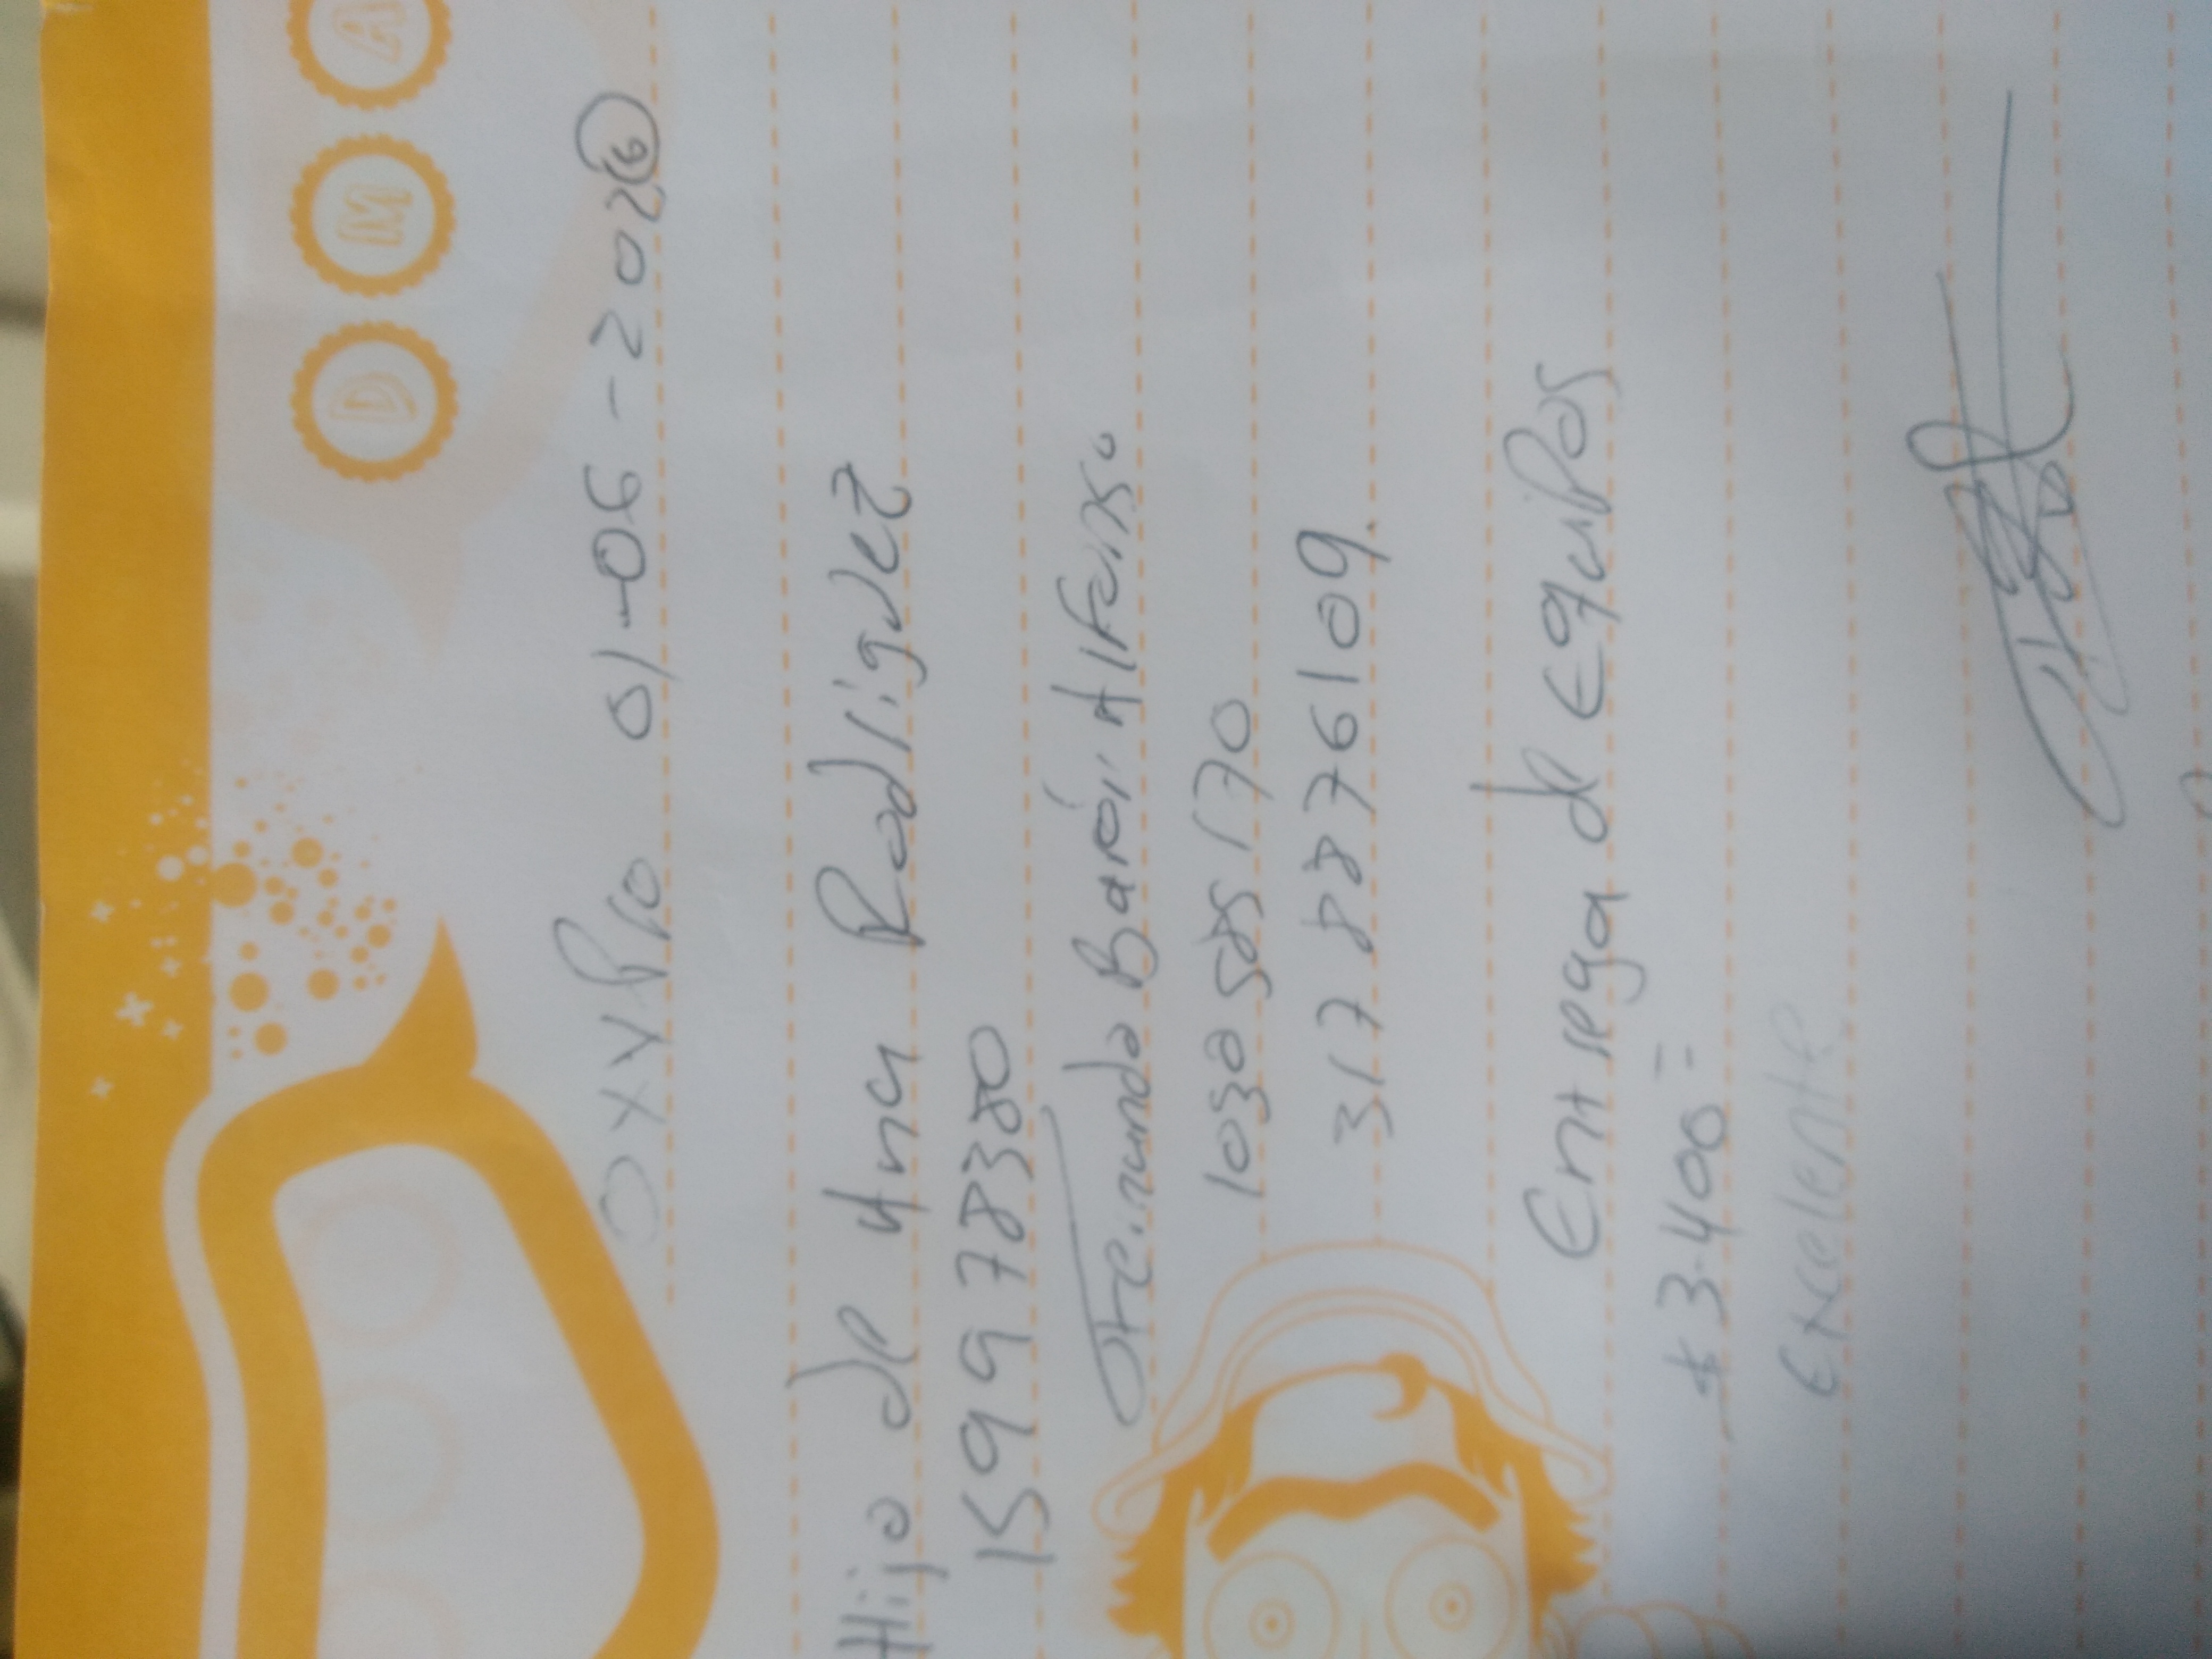 D M A
OXYPro 01-06-2026
Hijo de Ana Rodriguez
159978380
Barón Alfonso
1030585170
3178876109.
Entrega de Equipos
$ 3.400=
Excelente